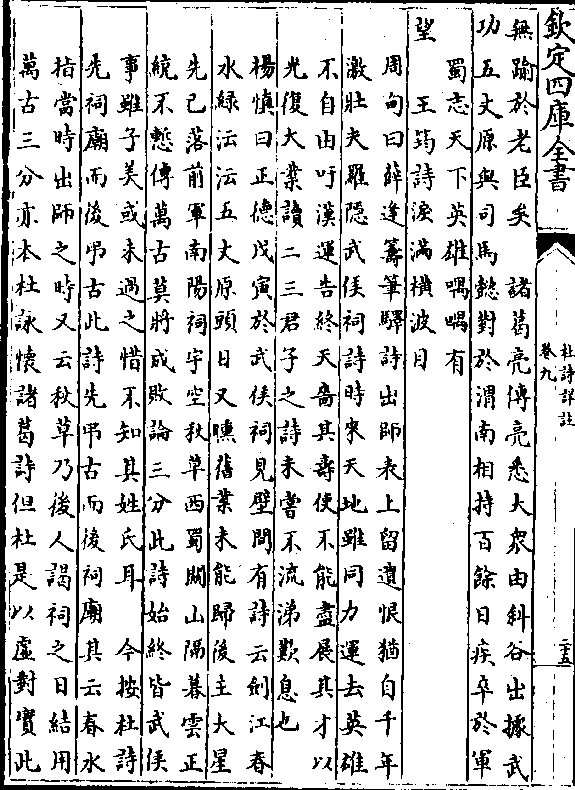 欽定四庫全書
杜詩詳註
卷九
二五
無踰於老臣矣　諸葛亮傳亮悉大衆由斜谷出據武
功五丈原與司馬懿對於渭南相持百餘日疾卒於軍
蜀志天下英雄喁喁有
望　王筠詩淚滿橫波目
周甸曰薛逢籌筆驛詩出師表上留遺恨猶自千年
激壯夫羅隱武侯祠詩時來天地雖同力運去英雄
不自由吁漢運告終天嗇其壽使不能盡展其才以
光復大業讀二三君子之詩未嘗不流涕歎息也
楊慎曰正德戊寅於武侯祠見壁間有詩云劍江春
水綠沄沄五丈原頭日又曛舊業未能歸後主大星
先已落前軍南陽祠宇空秋草西蜀關山隔暮雲正
統不慙傳萬古莫將成敗論三分此詩始終皆武侯
事雖子美或未過之惜不知其姓氏耳　今按杜詩
先祠廟而後弔古此詩先弔古而後祠廟其云春水
指當時出師之時又云秋草乃後人謁祠之日結用
萬古三分亦本杜詠懷諸葛詩但杜是以虛對實此